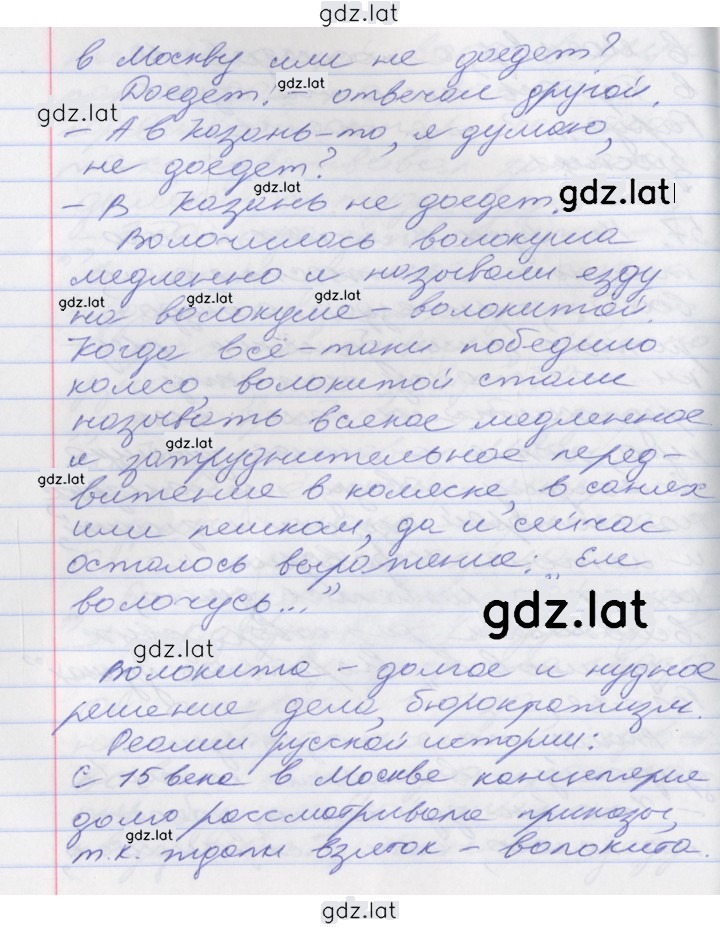 gdz.lat
в Москву или не доедет?
gdz.lat
Доедет, – отвечал другой.
gdz.lat
– А в Казань-то, я думаю,
не доедет?
gdz.lat
gdz.lat
– В Казань не доедет.
Волочилась волокуша
медленно и называли езду
gdz.lat gdz.lat gdz.lat
на волокуше – волокитой.
Когда всё-таки победило
колесо, волокитой стали
называть всякое медленное
gdz.lat
и затруднительное перед-
gdz.lat
вижение в коляске, в санях
или пешком, да и сейчас
осталось выражение: „Еле
волочусь..."
gdz.lat
gdz.lat
Волокита – долгое и нудное
решение дела, бюрократизм.
Реалии русской истории:
С 15 века в Москве канцелярия
долго рассматривала приказы,
gdz.lat
т.к. ждали взяток – волокита.
gdz.lat